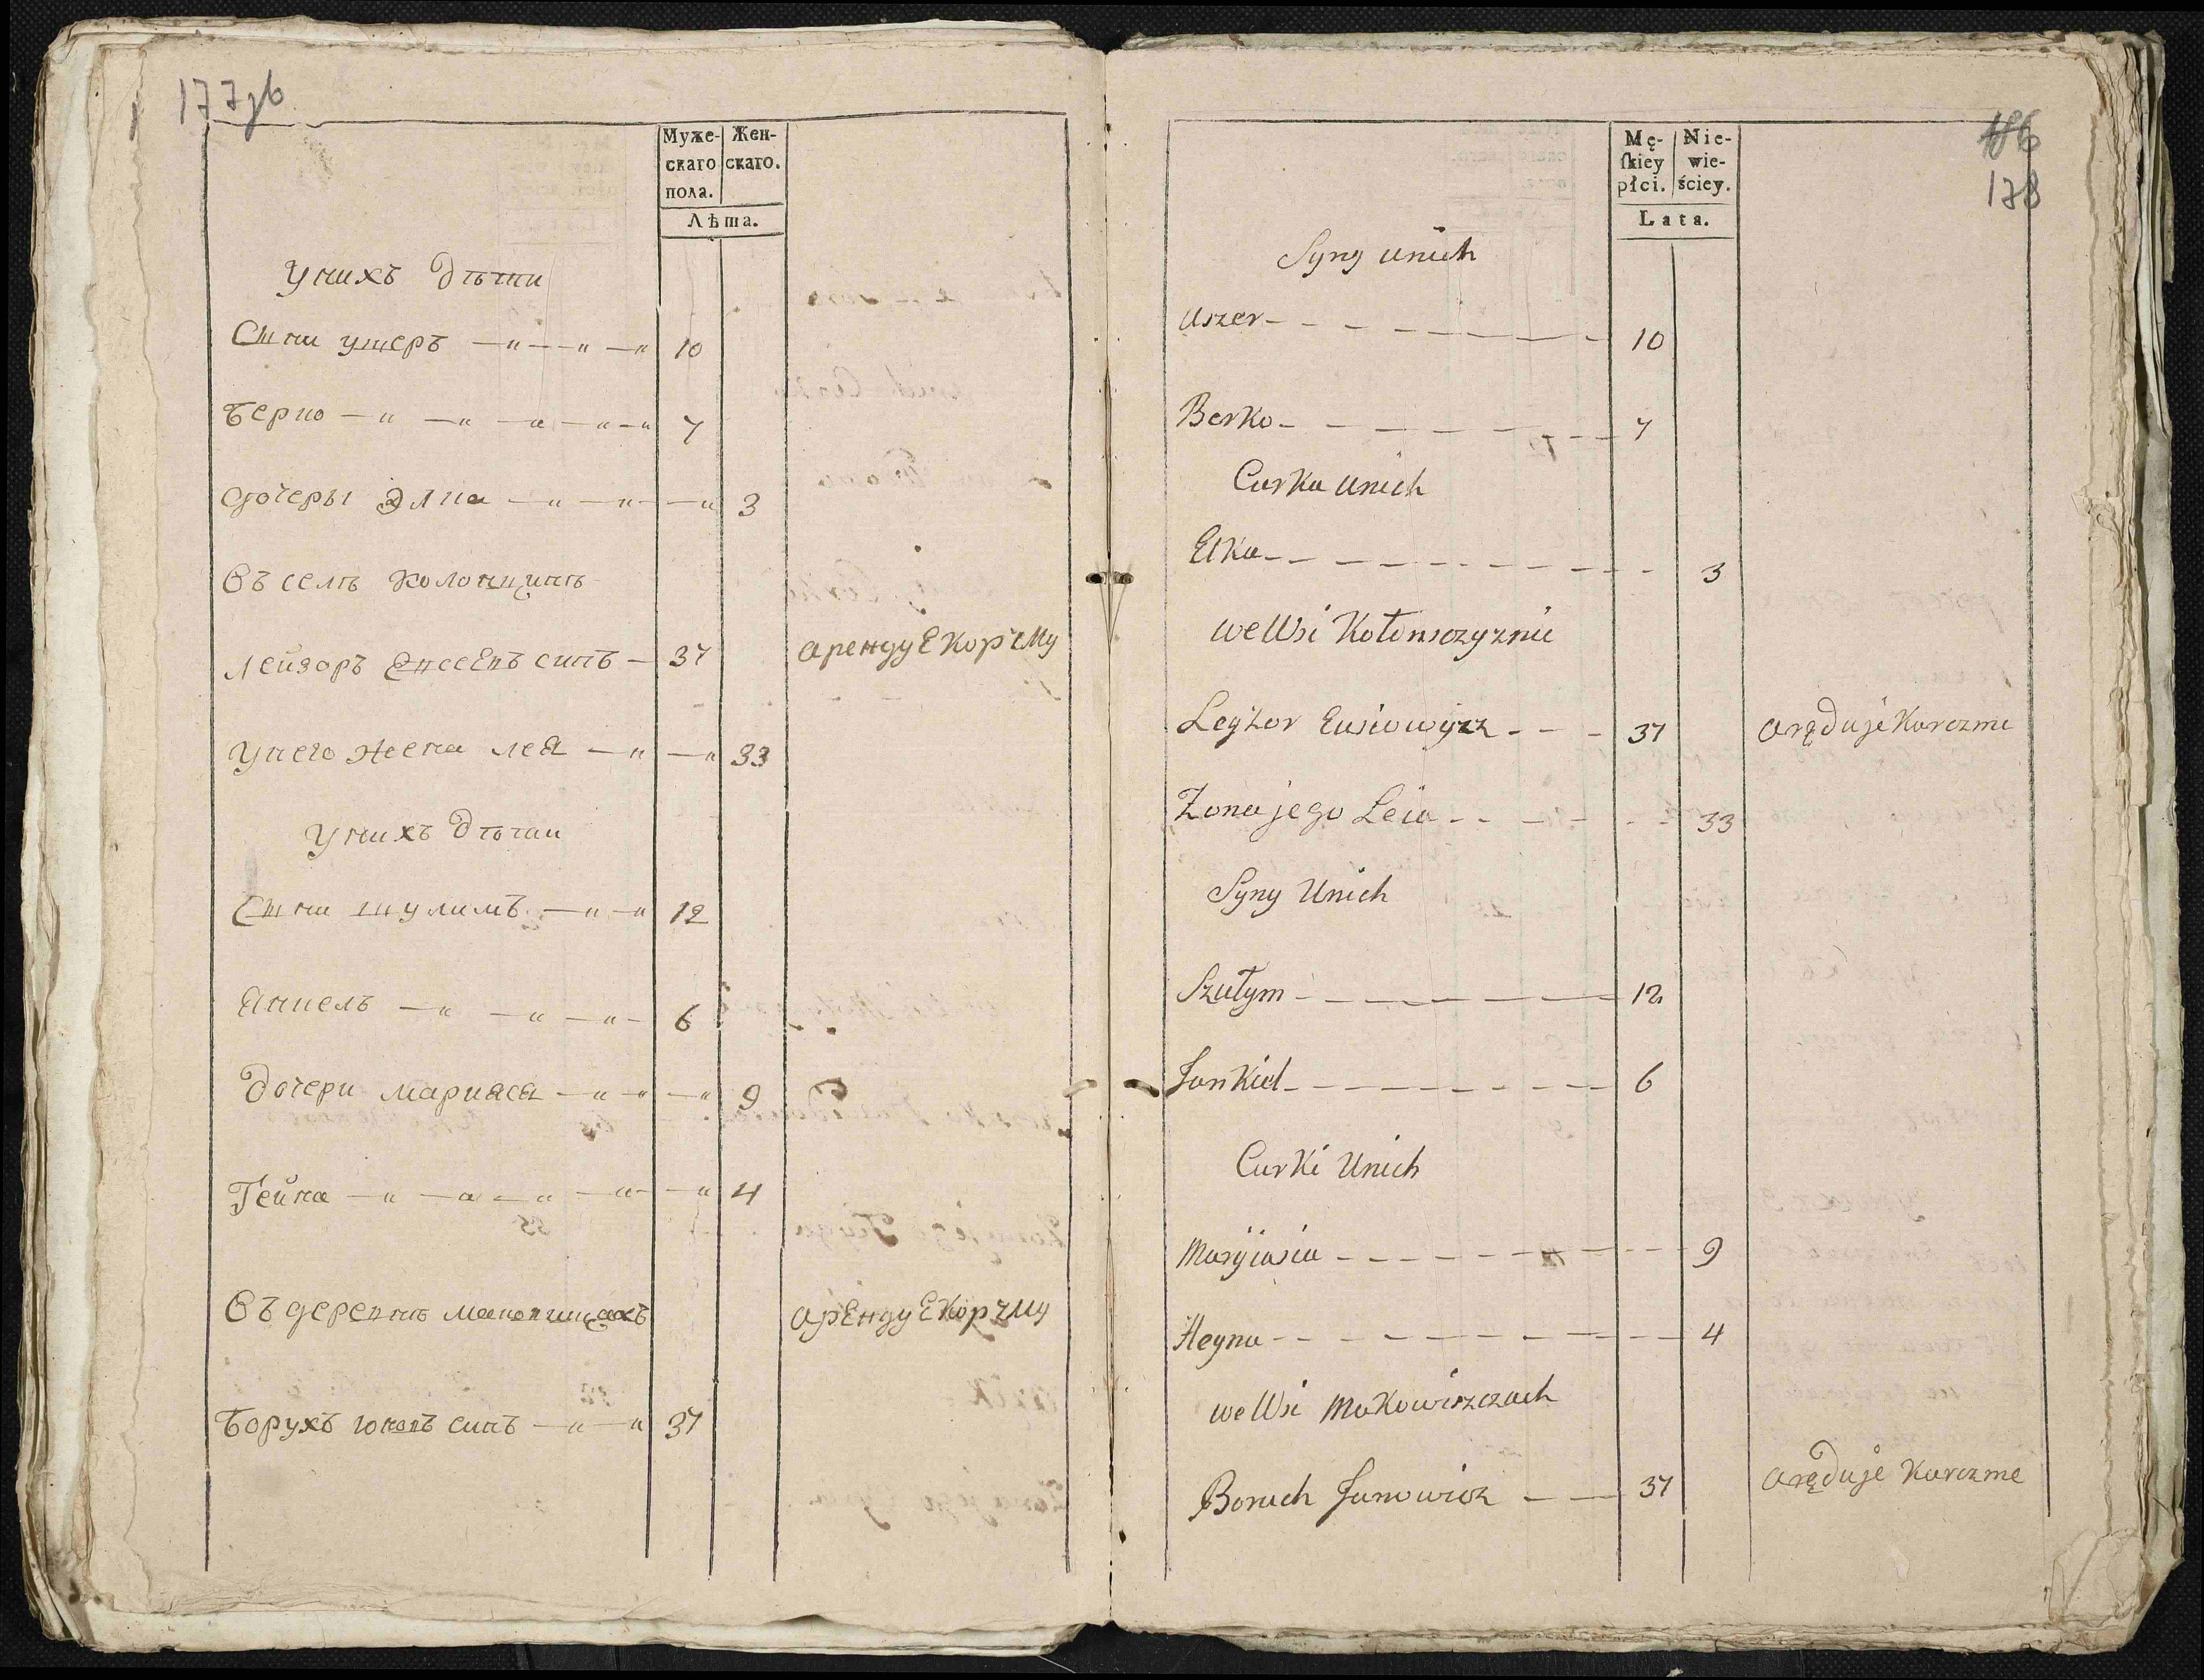 177зв
Муже-
скаго
пола.
Жен-
скаго.
Лѣта.
Унихъ дѣти
Сini ушеръ 10
Берко 7
дочеры Элка 3
Въ селѣ Колонщинѣ
Лейзоръ Евсеевъ синъ 37 арендуе корчму
Унего жена Лея 33
Унихъ дѣти
Сіни шулимъ 12
Янкель 6
Дочери марияся 9
Гейна 4
Въ деревнѣ маковищахъ арендуе корчму
Борухъ юновъ синъ 37
186
178
Mę-
ſkiey
płci.
Nie-
wie-
ściey.
Lata.
Syny unich
Uszer 10
Berko 7
Curka unich
Elka 3
we Wsi Kołonsczyznie
Leyzor Eusiowicz 37 aręduje Karczme
Zona jego Leia 33
Syny Unich
Szułym 12
Jankiel 6
Curki Unich
Maryiasia 9
Heyna 4
we Wsi Makowiszczach
Boruch Junowicz 37 aręduje Karczme